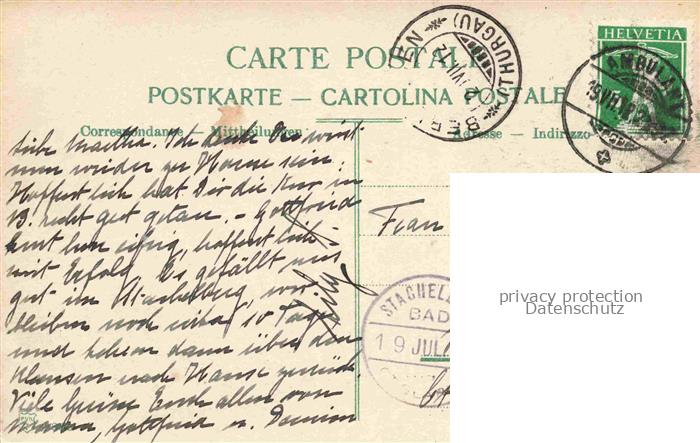 HELVETIA
CARTE POSTALE
POSTKARTE — CARTOLINA POSTALE
Correspondance — Mittheilungen
Adresse — Indirizzo
AMBULANT
(THURGAU)
VII.12
Liebe Martha. Ich denke Du wirst
nun wieder zu Hause sein.
Hoffentlich hat Dir die Kur in
B. recht gut getan. – Gottfried
hier eifrig, hoffentlich
mit Erfolg. Es gefällt uns
gut im Stachelberg, wir
bleiben noch 10 Tage
und kehren dann über den
Klausen nach Hause zurück.
Viele Grüsse Euch allen von
Gottfried u.
Frau
STACHEL
BAD
19 JUL.
privacy protection
Datenschutz